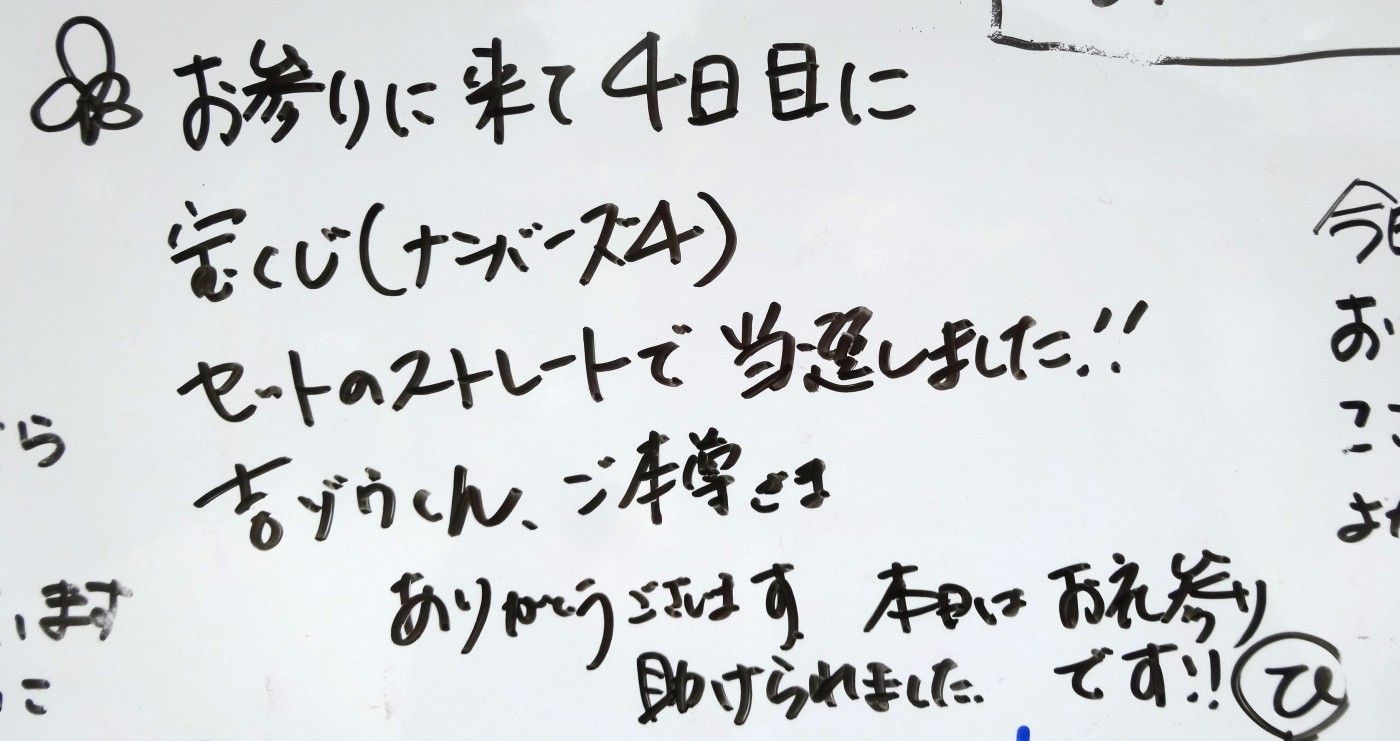 お参りに来て4日目に
宝くじ(ナンバーズ4)
セットのストレートで当選しました!!
吉ゾウくん、ご本尊さま
ありがとうございます 本日はお礼参り
助けられました。 です!! ひ
ら
います
こ
今日
お
ここ
よ